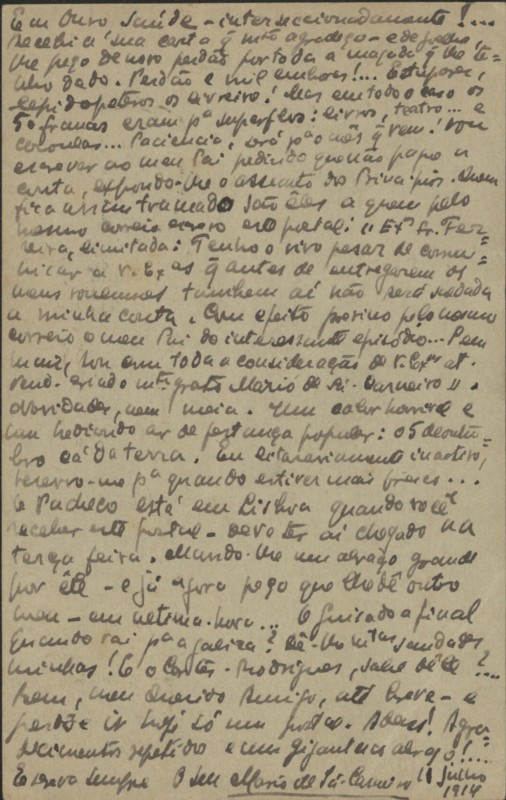 Em Ouro Saúde - interseccionadamente!...
Recebi a sua carta q mto agradeço - e de joelhos
lhe peço de novo perdão por toda a maçada q lhe te=
nho dado. Perdão e mil emboras!...
lepidopteros os livreiro! Mas em todo o caso os
50 francos eram pa superfluos: livros, teatro... e
Paciencia, será pa o mês q vem! Vou
escrever ao meu Pai pedindo que não pague a
conta, expondo-lhe o assunto dos Principios. Quem
fica assim tramado são eles a quem pelo
mesmo correio escrevo este postal: "Exos Srs. Fer=
reira, Limitada: Tenho o vivo pesar de comu=
nicar a V. Exas q antes de entregarem os
meus volumes tambem aí não será saldada
a minha conta. Com efeito previno pelo mesmo
correio o meu Pai do interessante episódio... Sem
mais, sou com toda a consideração de V. Exas at.
vend. criado mto grato Mário de Sá-Carneiro".
Novidades, nem meia. Um calor horrivel e
um hediondo ar de festança popular: o 5 de outu=
bro cá da terra. Eu literariamente inactivo,
reservo-me pa quando estiver mais fresco...
O Pacheco está em Lisboa quando você
receber este postal - deve ter aí chegado na
terça feira. Mando-lhe um abraço grande
por êle - e já agora peço que lhe dê outro
meu - em ultima-hora... O Guisado afinal
quando vai pa a Galiza? Dê-lhe mtas saudades
minhas! E o Côrtes-Rodrigues, sabe dêle?...
Bem, meu querido Amigo, até breve - e
perdôe ir hoje só um postal. Adeus! Agra=
decimentos repetidos e um gigantesco abraço!...
Escreva sempre O seu Mário de Sá-Carneiro 11 julho
1914